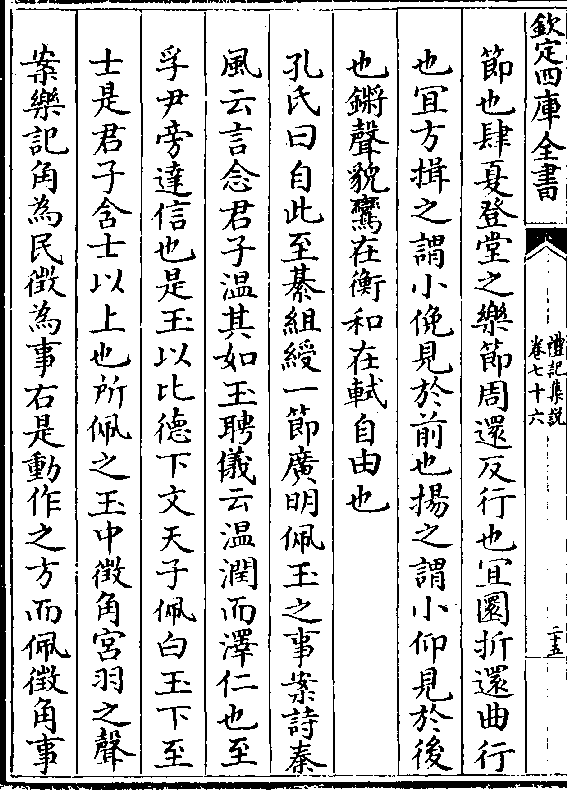 欽定四庫全書
禮記集說
卷七十六
二十五
節也肆夏登堂之樂節周還反行也宜圜折還曲行
也宜方揖之謂小俛見於前也揚之謂小仰見於後
也鏘聲貌鸞在衡和在軾自由也
孔氏曰自此至綦組綬一節廣明佩玉之事案詩秦
風云言念君子温其如玉聘儀云温潤而澤仁也至
孚尹旁達信也是玉以比德下文天子佩白玉下至
士是君子含士以上也所佩之玉中徵角宮羽之聲
案樂記角為民徵為事右是動作之方而佩徵角事